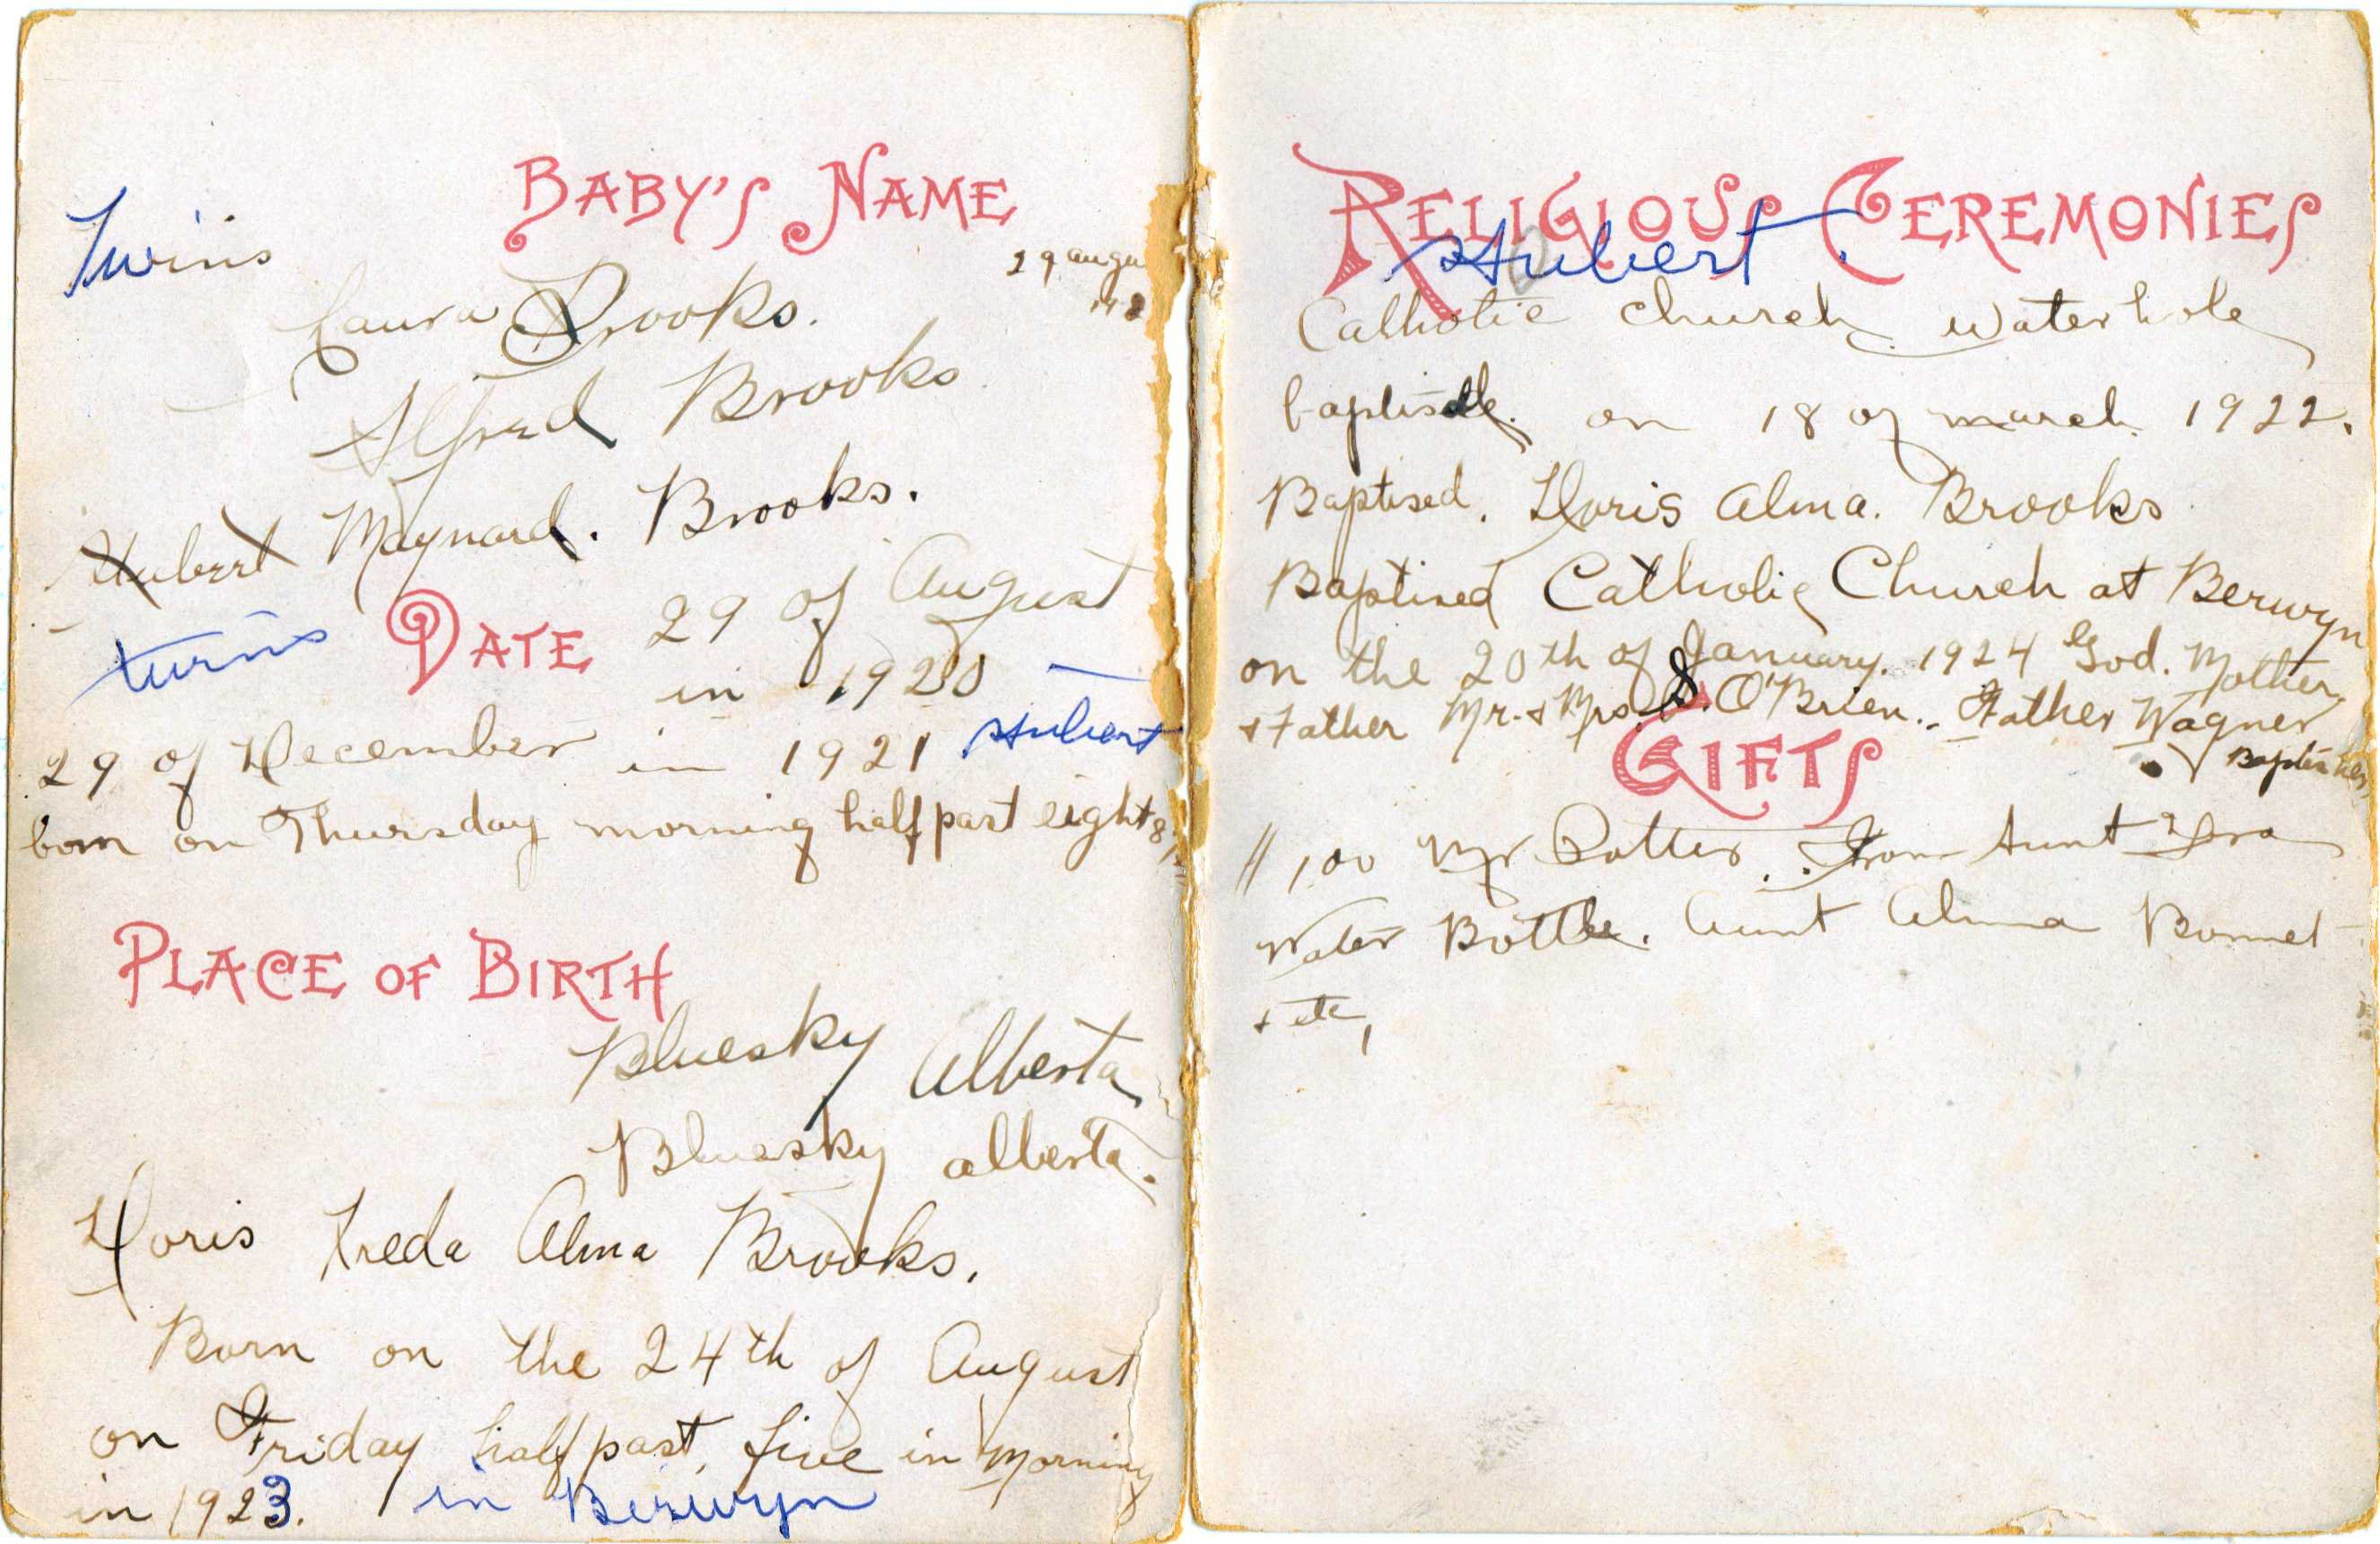 BABY'S NAME
Twins
29 Augu
Laura Brooks.
Alfred Brooks
Hubert Maynard. Brooks.
twins DATE 29 of August
in 1920
29 of December in 1921 Hubert
born on Thursday morning half past eight
PLACE OF BIRTH
Bluesky Alberta
Bluesky alberta.
Doris Freda Alma Brooks.
Born on the 24th of August
on Friday half past, five in Morning
in 1923. in Berwyn
RELIGIOUS CEREMONIES
Hubert
Catholic church waterhole
on 18 of march 1922.
Baptised. Doris Alma. Brooks
Baptised Catholic Church at Berwyn
on the 20th of January. 1924 God. Mother
+ Father Mr. + Mrs. O'Brien.. Father Wagner
GIFTS
1.00 Mr Potter. From Aunt
Water Bottle. Aunt Alma Bonnet
+ etc,